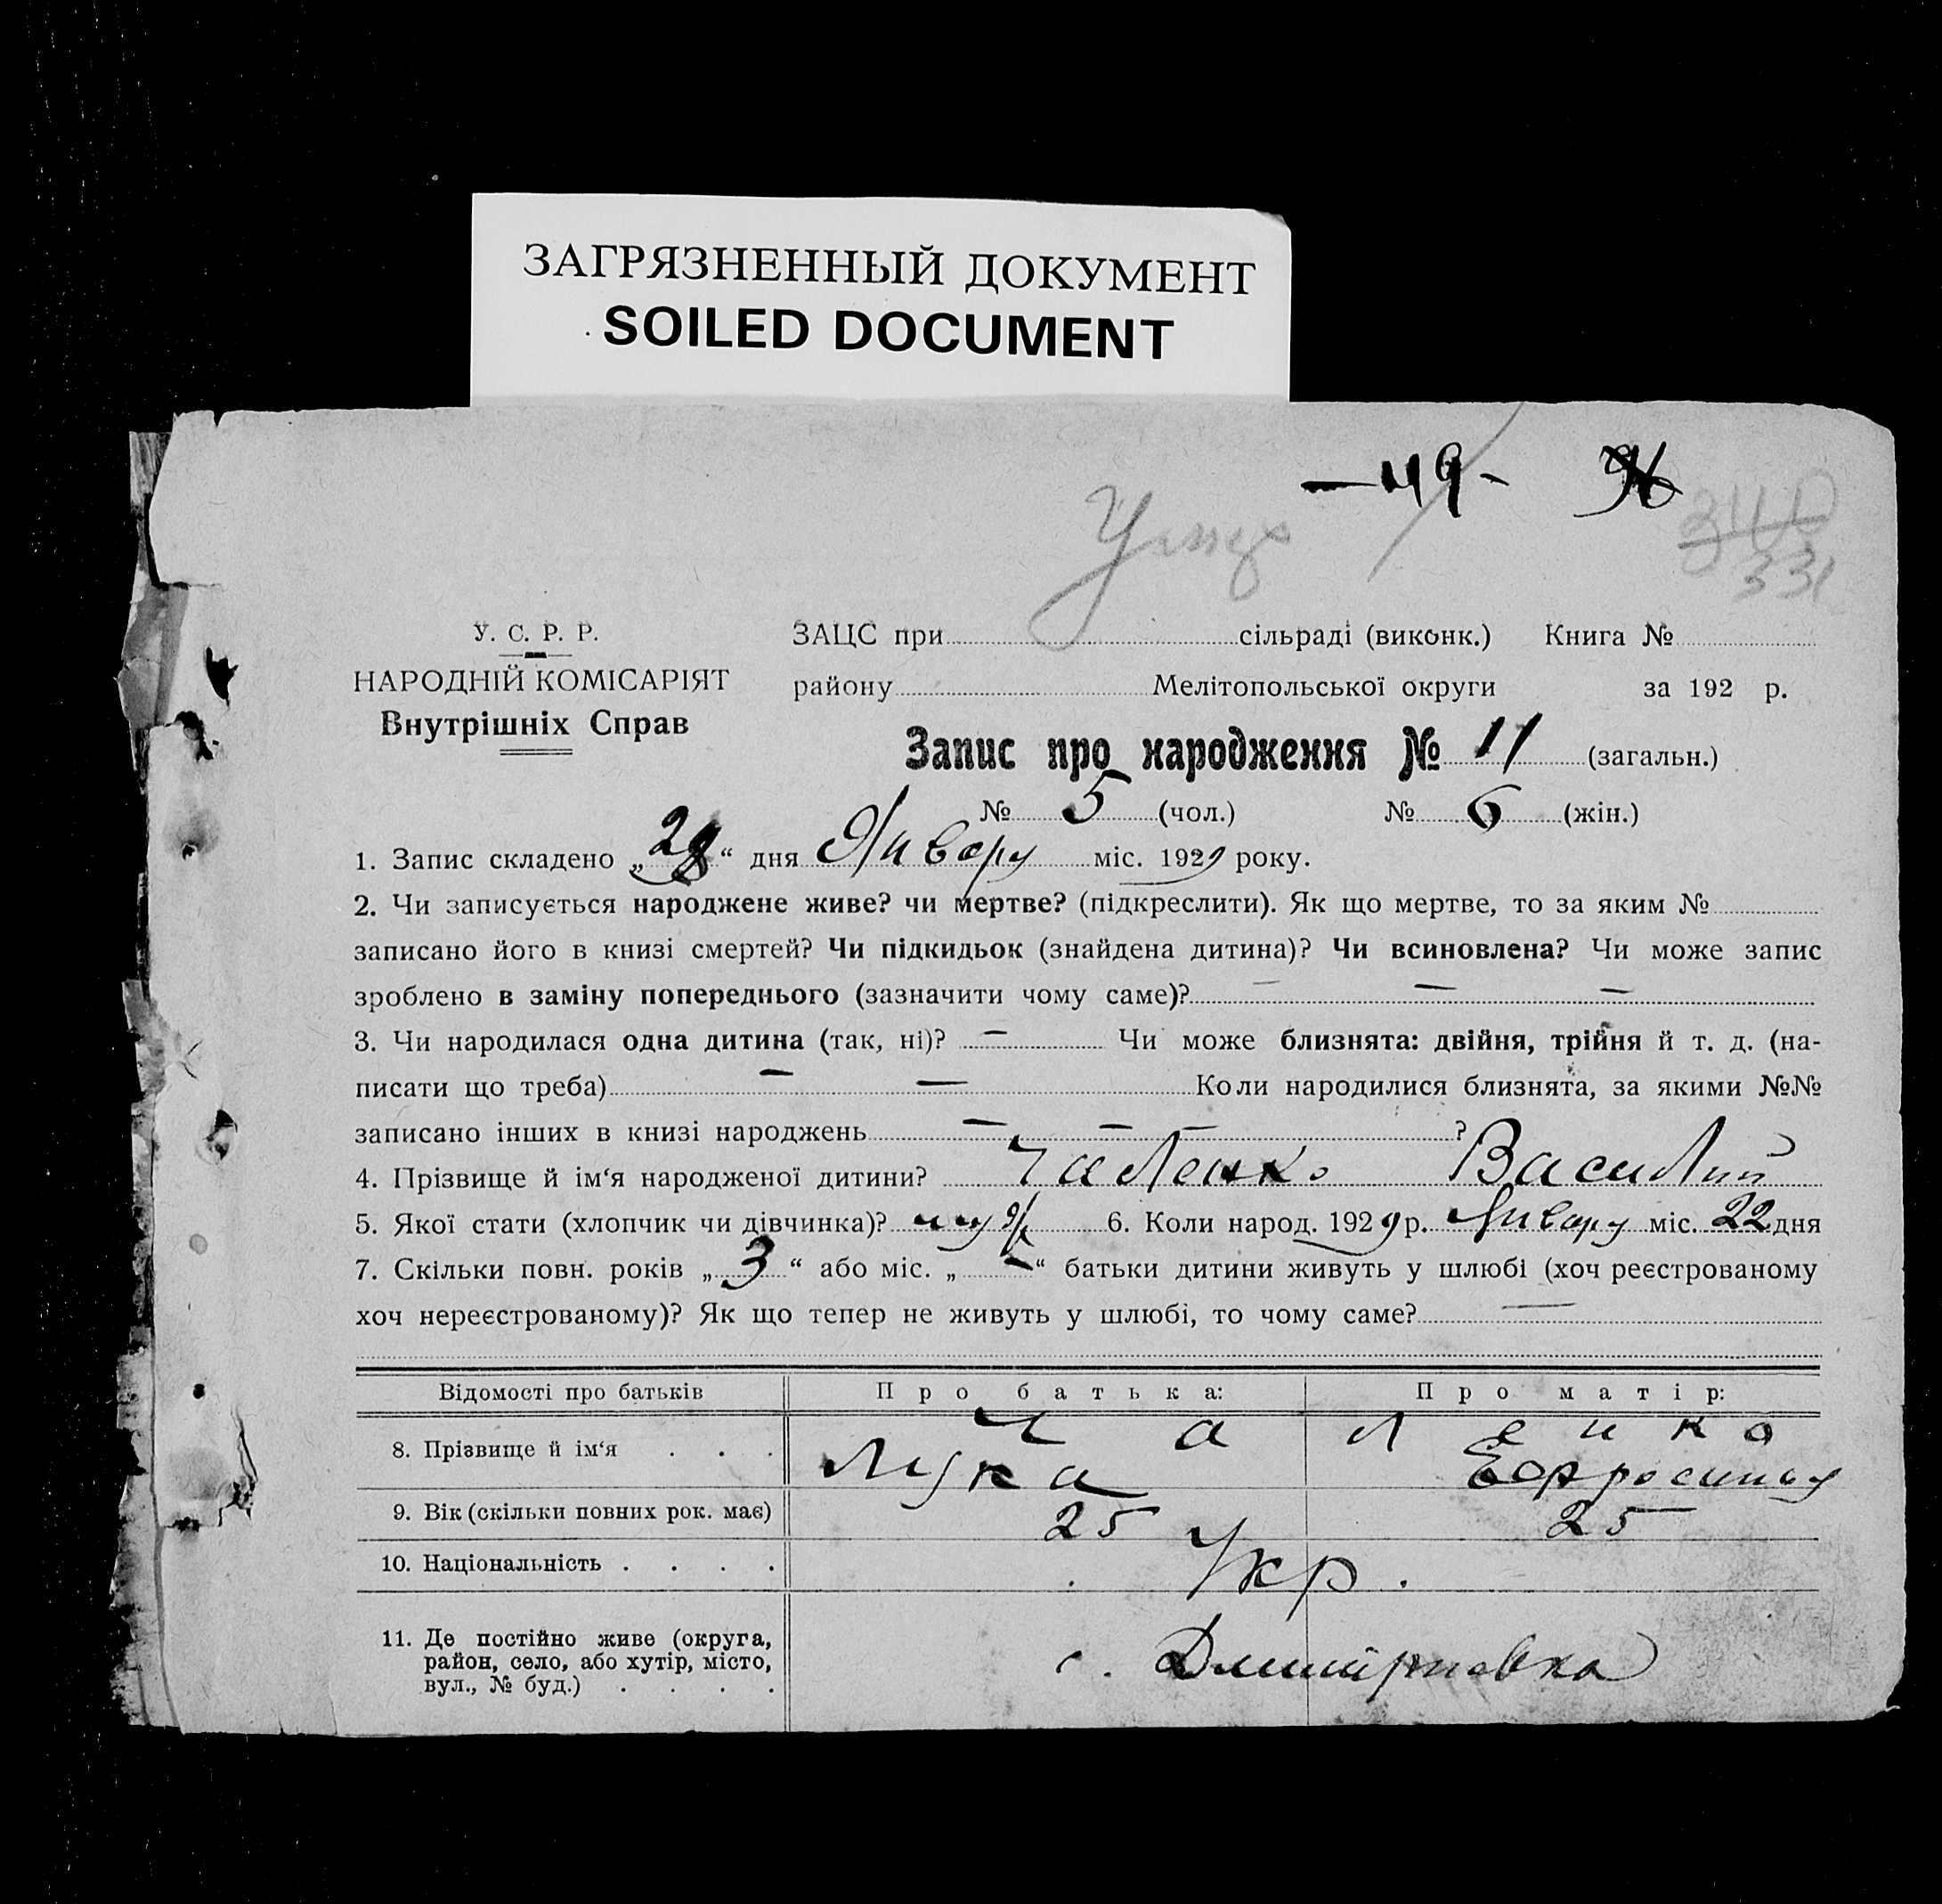 ЗАГРЯЗНЕННЫЙ ДОКУМЕНТ
SOILED DOCUMENT
—49- 96
340
331
У. С. Р. Р.
НАРОДНІЙ КОМІСАРІЯТ
Внутрішніх Справ
ЗАЦС при сільраді (виконк.) Книга №
району Мелітопольської округи за 192 р.
Запис про народження № 11 (загальн.)
№ 5 (чол.) № 6 (жін.)
1. Запис складено „28“ дня Январу міс. 1929 року.
2. Чи записується народжене живе? чи мертве? (підкреслити). Як що мертве, то за яким №
записано його в книзі смертей? Чи підкидьок (знайдена дитина)? Чи всиновлена? Чи може запис
зроблено в заміну попереднього (зазначити чому саме)? — — —
3. Чи народилася одна дитина (так, ні)? — Чи може близнята: двійня, трійня й т. д. (на-
писати що треба) — — Коли народилися близнята, за якими №№
записано інших в книзі народжень — — — ?
4. Прізвище й ім‘я народженої дитини? Чаленко Василий
5. Якої стати (хлопчик чи дівчинка)? муж 6. Коли народ. 1929 р. Январу міс. 22 дня
7. Скільки повн. років „3“ або міс. „—“ батьки дитини живуть у шлюбі (хоч реєстрованому
хоч нереєстрованому)? Як що тепер не живуть у шлюбі, то чому саме? —
Відомості про батьків Про батька: Про матір:
8. Прізвище й ім‘я . . . Ч а л е н к о
Лука Ефросинья
9. Вік (скільки повних рок. має) 25 25
10. Національність . . . . Укр.
11. Де постійно живе (округа,
район, село, або хутір, місто,
вул., № буд.) . . . . с. Дмитровка